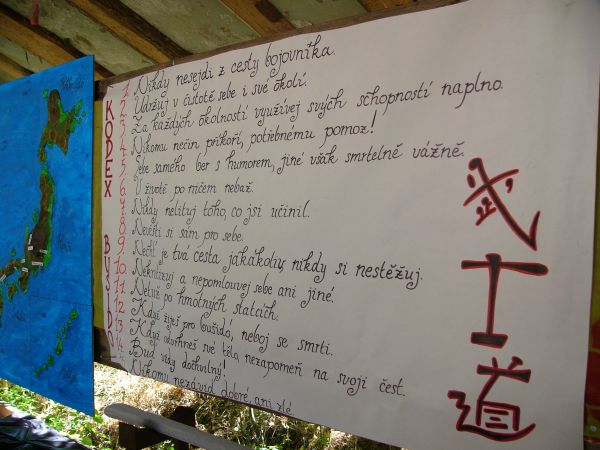 KODEX BUŠID
1 Nikdy nesejdi z cesty bojovníka.
2 Udržuj v čistotě sebe i své okolí.
3 Za každých okolností využívej svých schopností naplno.
4 Nikomu nečiň příkoří, potřebnému pomoz!
5 Sebe samého ber s humorem, jiné však smrtelně vážně.
6 V životě po ničem nebaž.
7 Nikdy nelituj toho, co jsi učinil.
8 si sám pro sebe.
9 Nechť je tvá cesta jakákoliv, nikdy si nestěžuj.
10 Nekritizuj a nepomlouvej sebe ani jiné.
11 Netuž po hmotných statcích.
12 Když žiješ pro bušidó, neboj se smrti.
13 Když odvrhneš své tělo, nezapomeň na svoji čest.
14 Buď vždy dochvilný!
Nikomu nezávid dobré, ani zlé
武士道